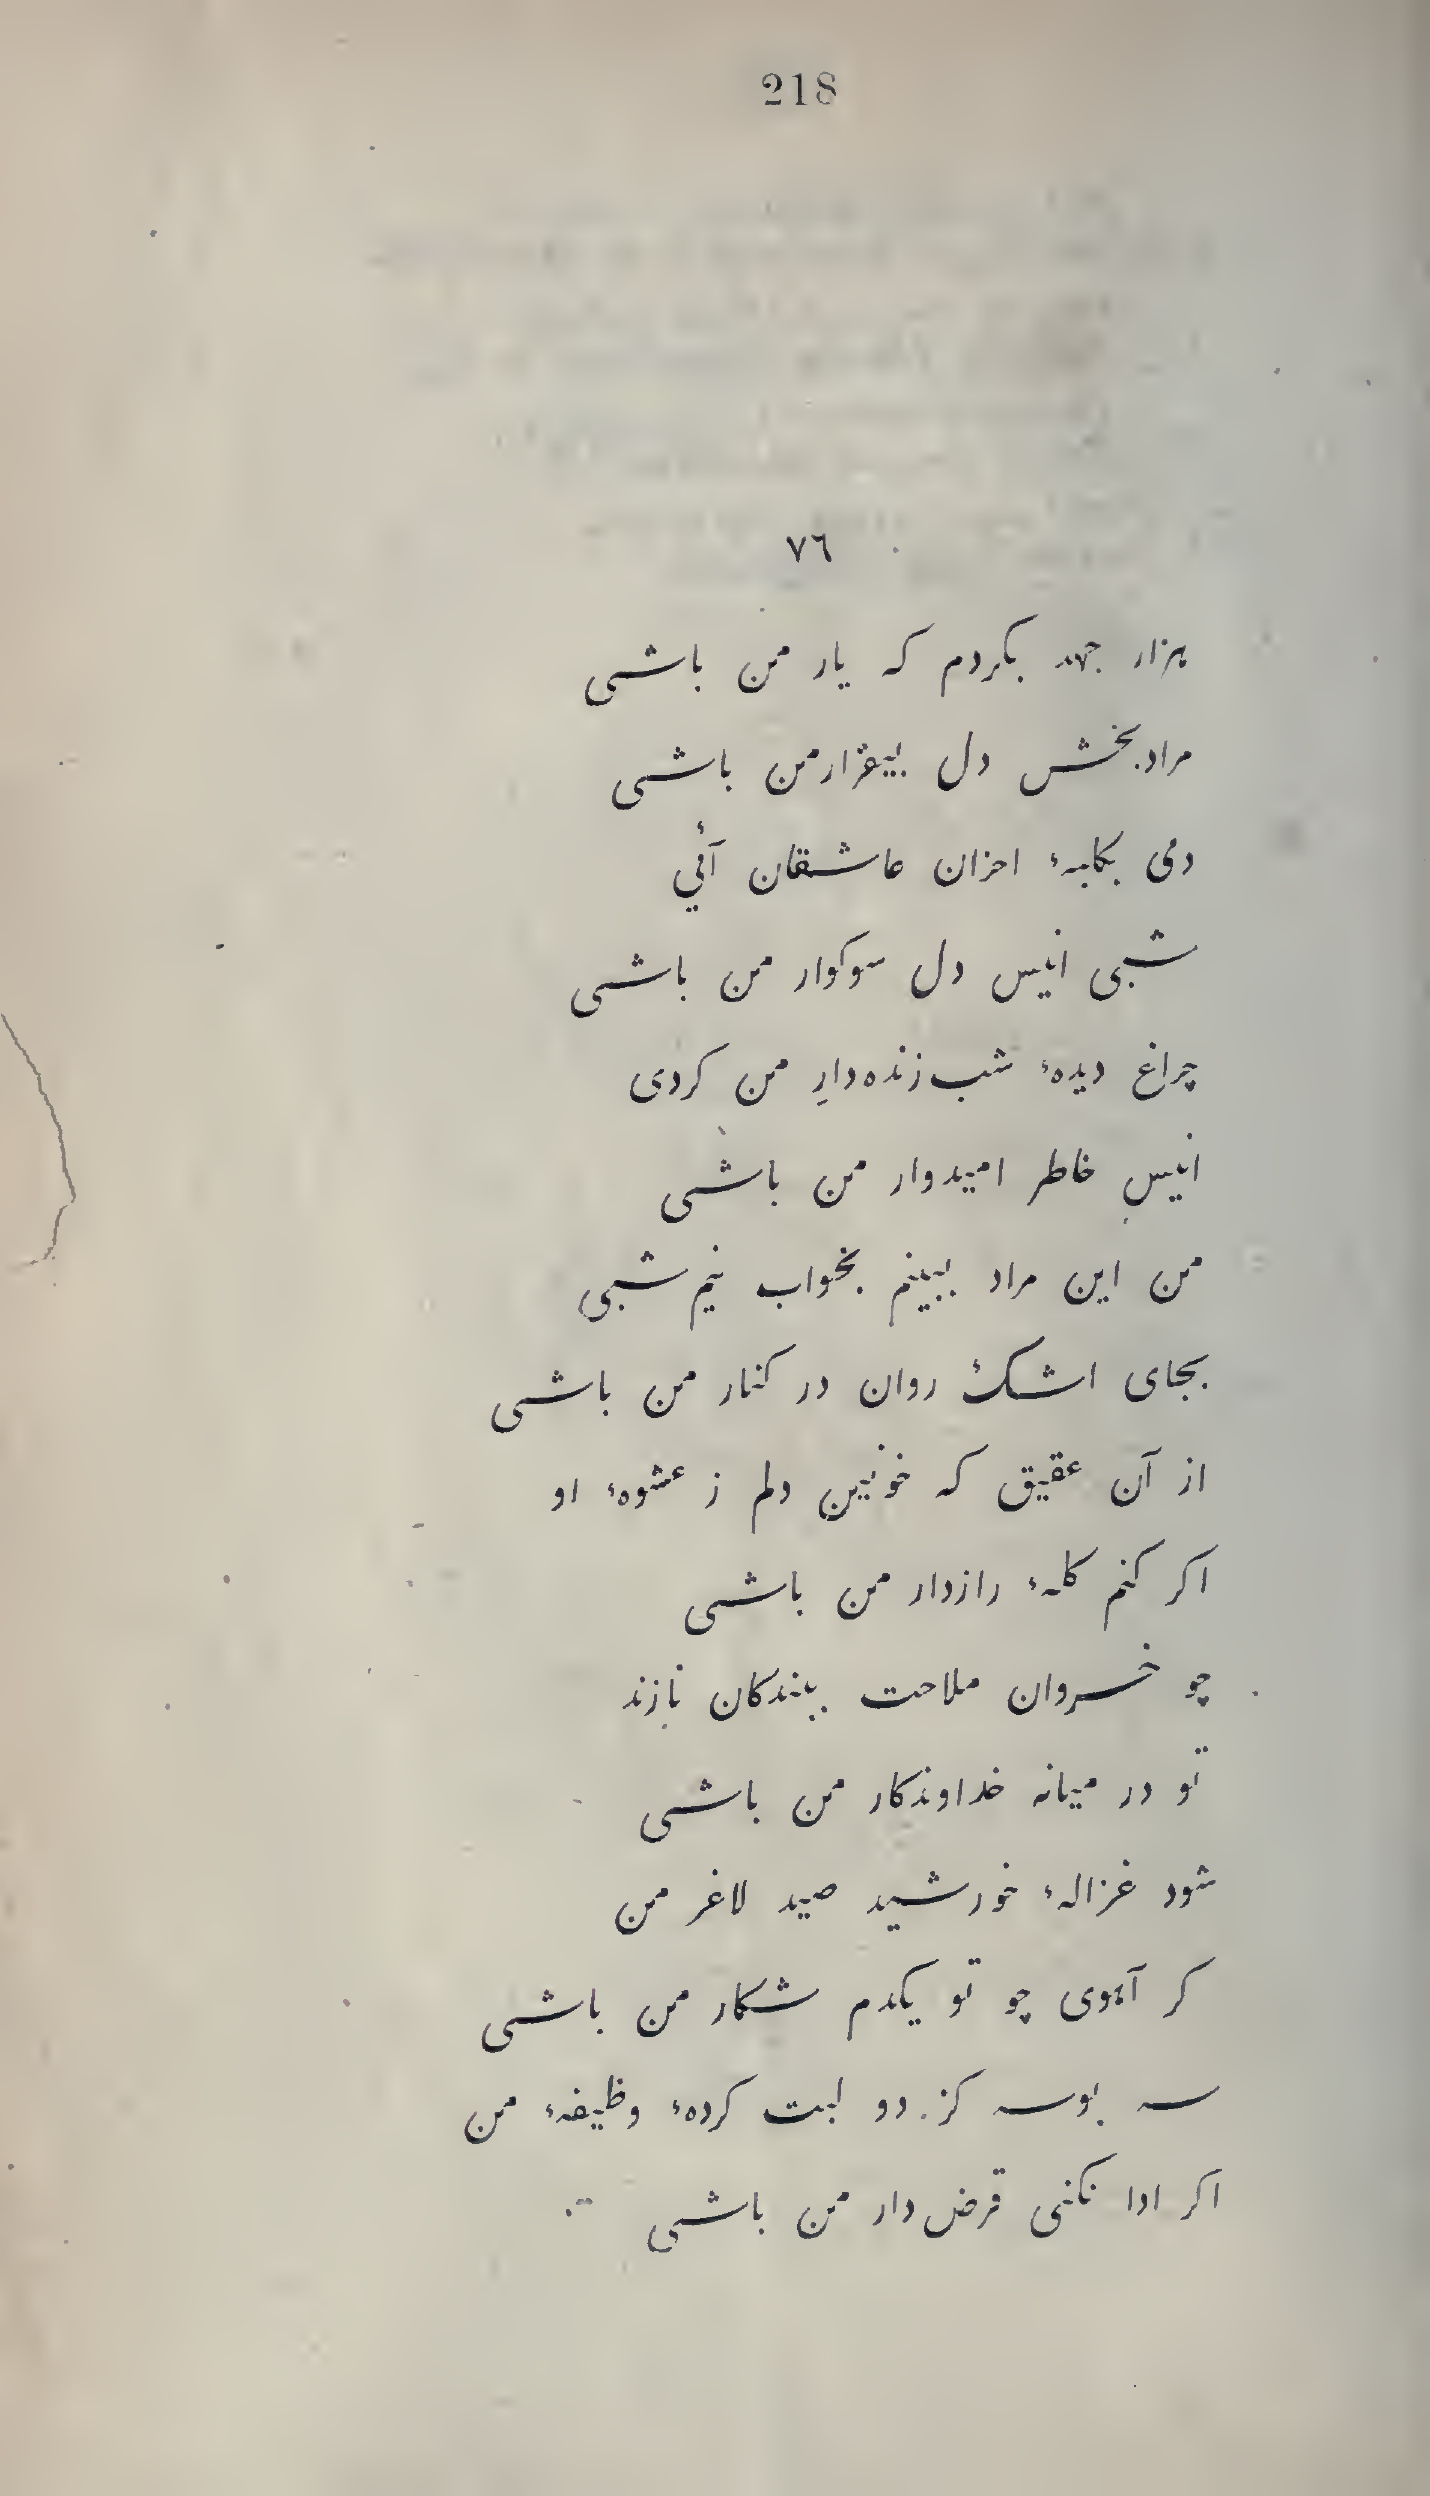 218
٧٦
هزار جهد بکردم که یار من باشی
مرادبخش دل بیقرارمن باشی
دمی بکلبهٔ احزان عاشقان آئي
شبی انیس دل سوکوار من باشی
چراغ دیدهٔ شب‌زنده‌دارِ من کردی
انیسِ خاطر امیدوار من باشی
من این مراد ببینم بخواب نیم‌شبی
بجای اشک روان در کنار من باشی
از آن عقیق که خونین دلم ز عشوهٔ او
اکر کنم کلهٔ رازدار من باشی
چو خسروان ملاحت ببندکان نازند
تو در میانه خداوندکار من باشی
شود غزالهٔ خورشید صید لاغر من
کر آهوی چو تو یکدم شکار من باشی
سه بوسه کز دو لبت کردهٔ وظیفهٔ من
اکر ادا نکنی قرض‌دار من باشی